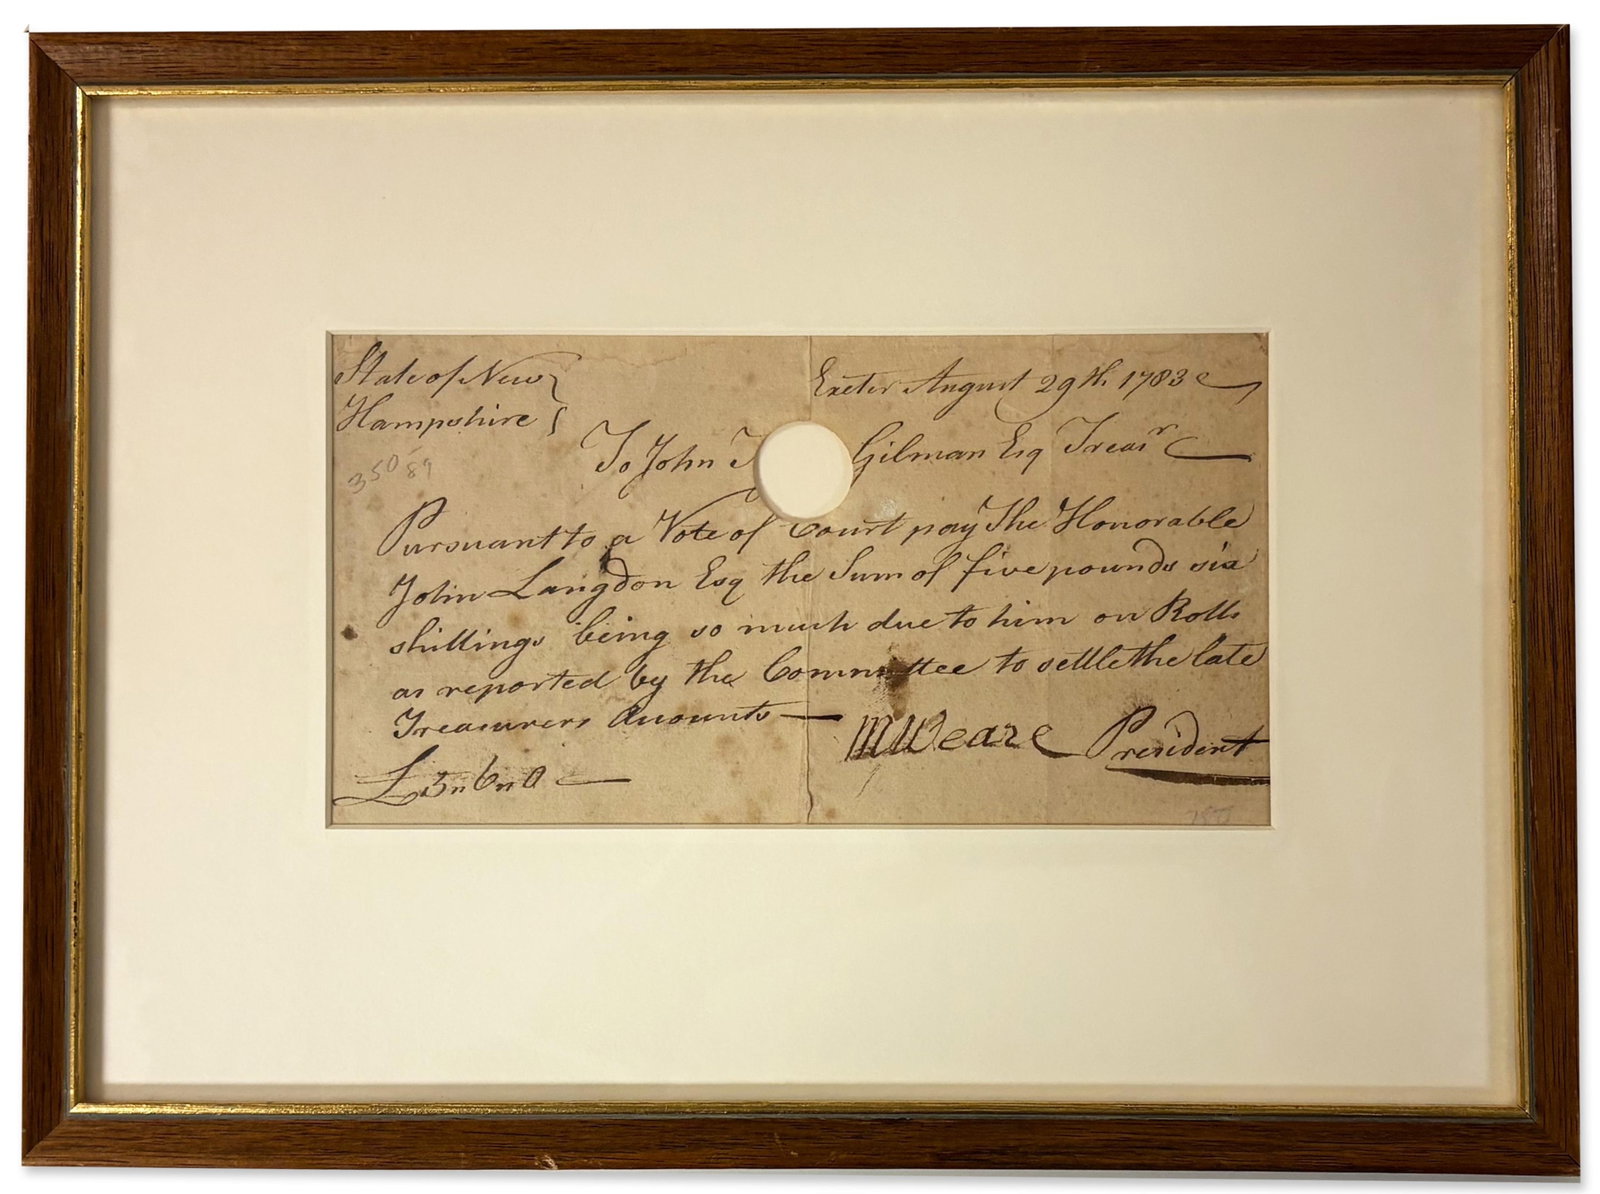 State of New
Hampshire
Exeter August 29th 1783
To John T Gilman Esq Treasr
35089
Pursuant to a Vote of Court pay The Honorable
John Langdon Esq the Sum of five pounds six
shillings being so much due to him on Rolls
as reported by the Committee to settle the late
Treasurers Accounts —
M Weare President
£ 5 " 6 " 0